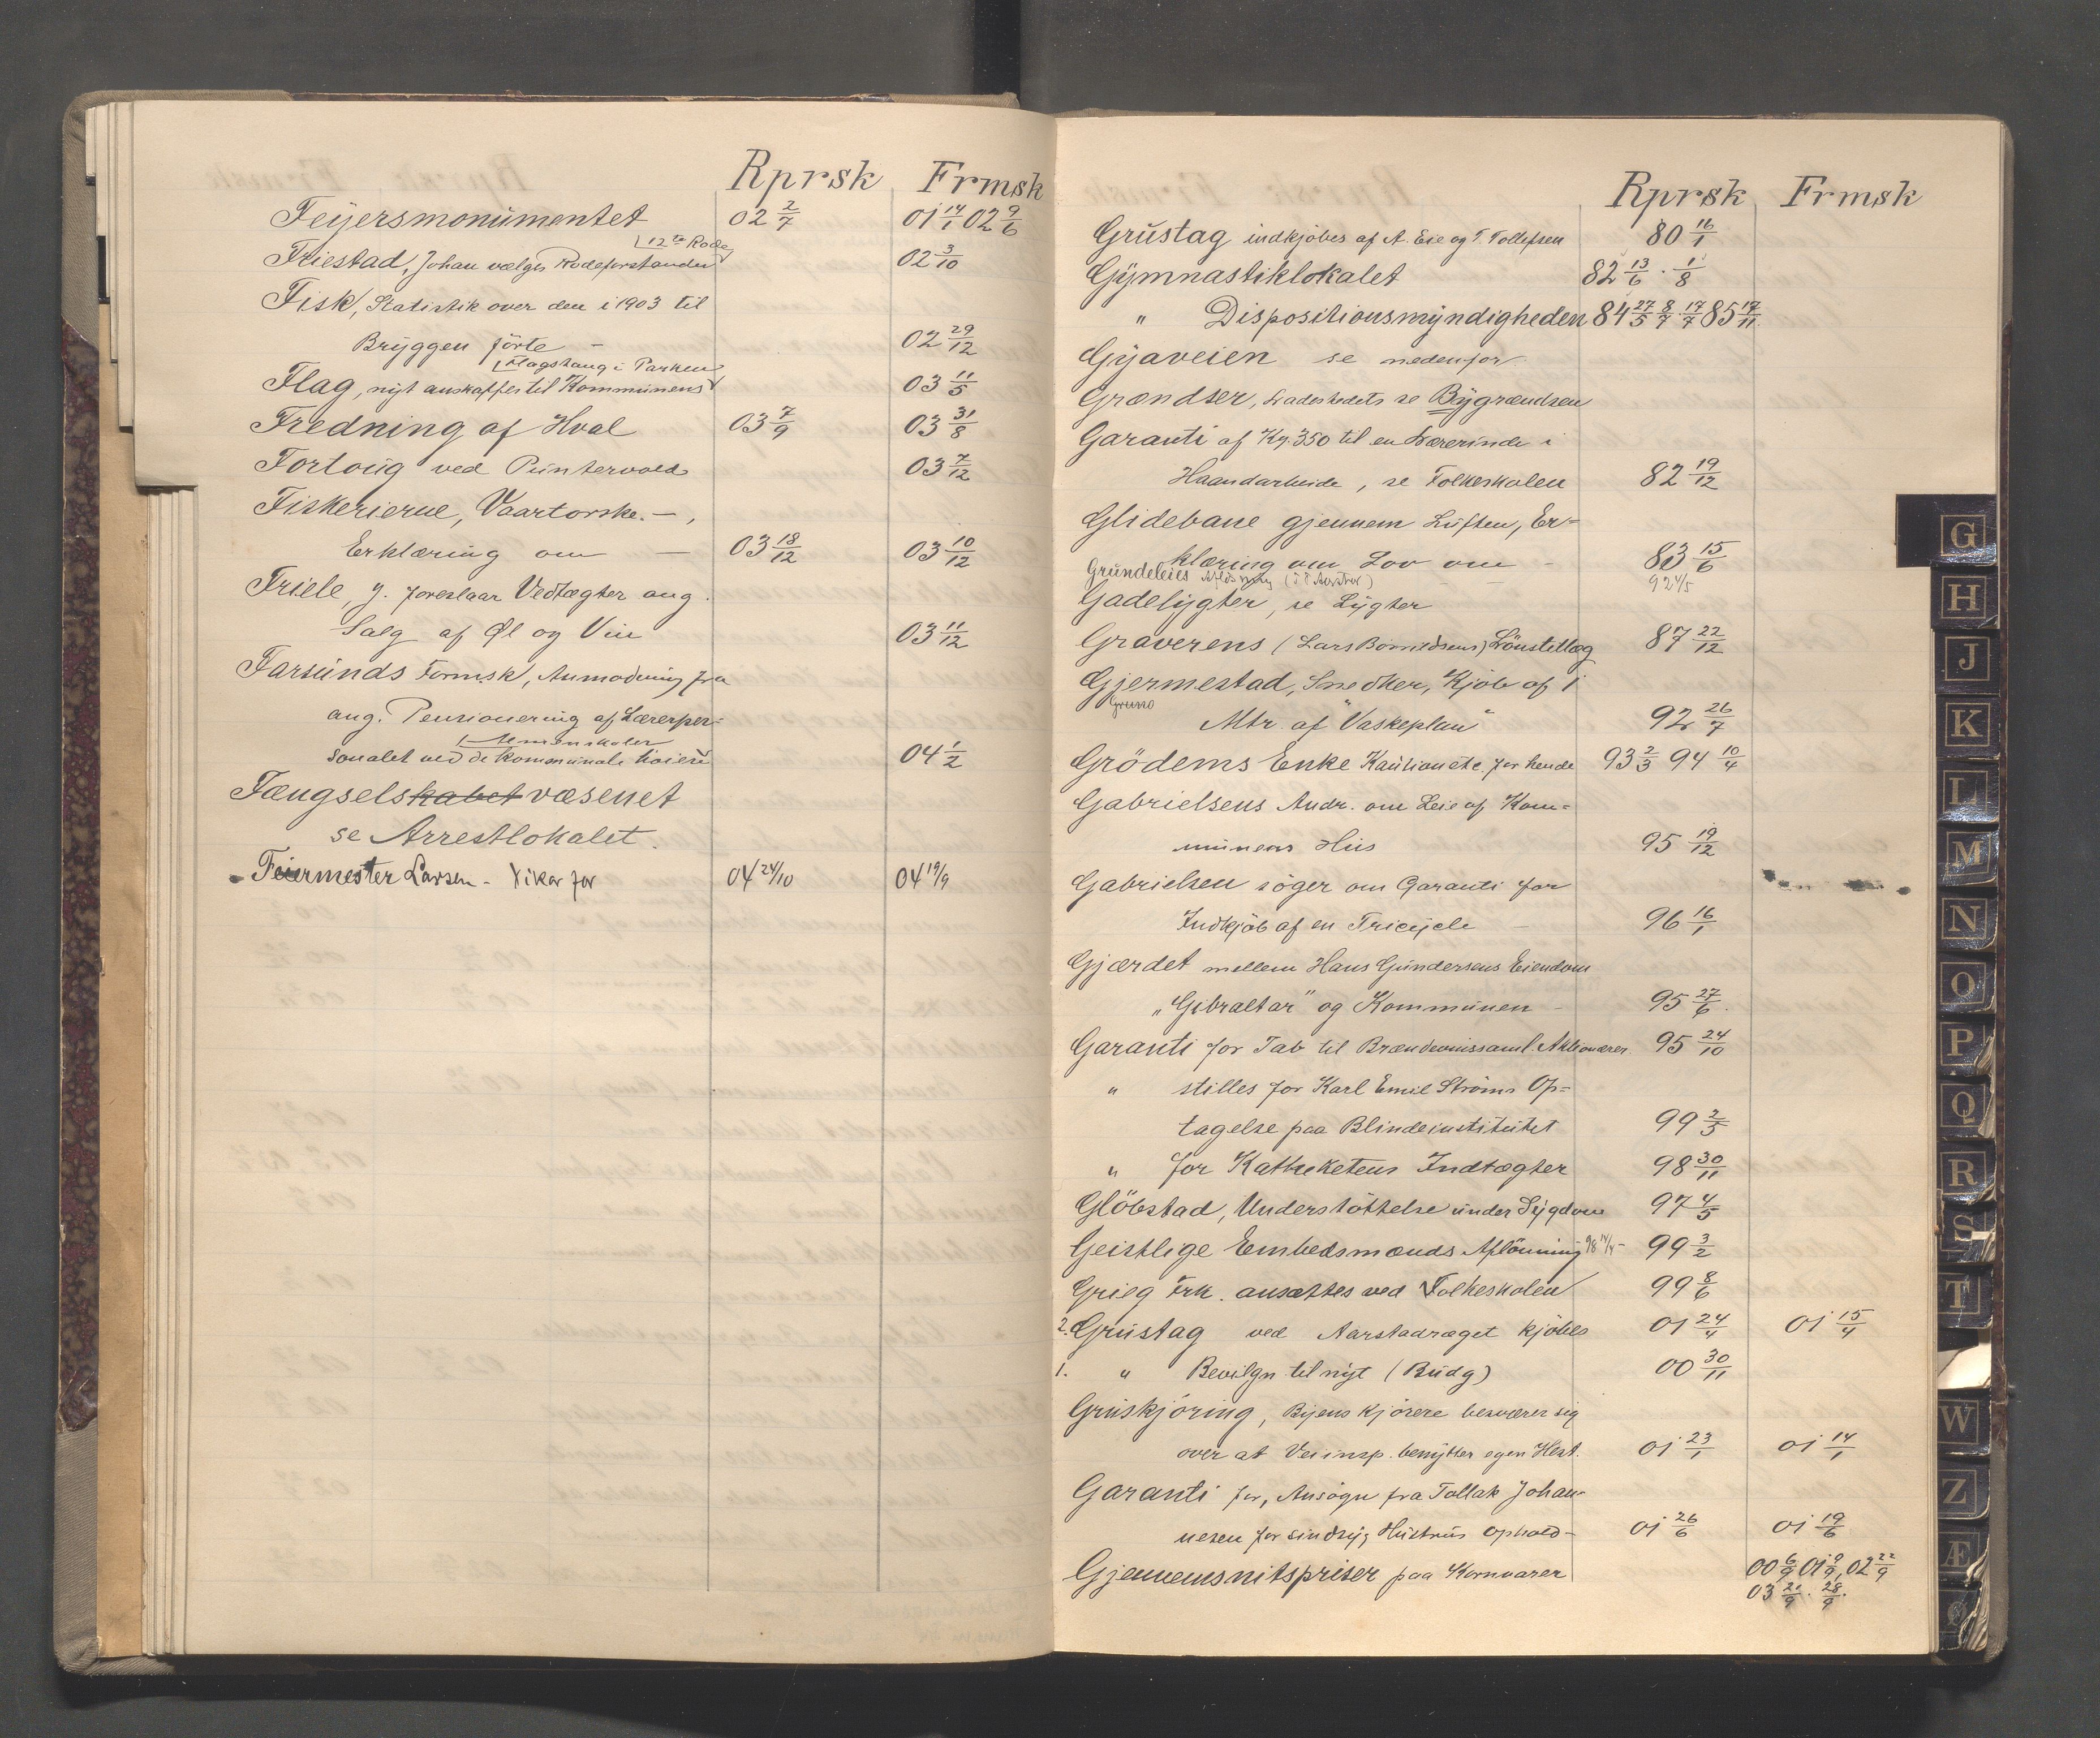 Rprsk Frmsk
Feijersmonumentet 02 2/7 01 14/1 02 9/6
12te Rode
Friestad, Johan vælges Rodeforstander 02 3/10
Fisk, Statistik over den i 1903 til
Bryggen förte — 02 29/12
Flagstang i Parken
Flag, nyt anskaffes til Kommunens 03 11/5
Fredning af Hval 03 7/9 03 31/8
Fortoug ved Puntervold 03 7/12
Fiskerierne, Vaartorske. —,
Erklæring om — 03 18/12 03 10/12
Friele, J. foreslaar Vedtægter ang.
Salg af Øl og Vin 03 11/12
Farsunds Formsk, Anmodning fra
ang. Pensionering af Lærerper=
Almenskoler
sonalet ved de kommunale høiere 04 1/2
Fængselskabet væsenet
se Arrestlokalet.
Feiermester Larsen - Vikar for 04 24/10 04 19/9
Rprsk Frmsk
Grustag indkjøbes af A. Eie og T. Tollefsen 80 16/1
Gymnastiklokalet 82 13/6 . 1/8
" Dispositionsmyndigheden 84 27/5 8/7 17/7 85 17/11
Gyaveien se nedenfor
Grændser, Ladestedets se Bygrændsen
Garanti af Kr. 350 til en Lærerinde i
Haandarbeide, se Folkeskolen 82 19/12
Glidebane gjennem Luften, Er=
klæring om Lov om - 83 15/6
Grundeleies 92 4/5
Gadelygter, se Lygter
Graverens (Lars Lönstillæg 87 22/12
Gjermestad, Snedker, Kjøb af 1
Grund
Mtr. af "Vaskeplan" 92 26/7
Grödems Enke Kautionete for hende 93 2/3 94 10/4
Gabrielsens Andr. om Leie af Kom=
munens Hus 95 19/12
Gabrielsen söger om Garanti for
Indkjöb af en Tricycle - 96 16/1
Gjærdet mellem Hans Gundersens Eiendom
„Gibraltar" og Kommunen - 95 27/6.
Garanti for Tab til Brændevinssaml. Aktionærer 95 24/10
" stilles for Karl Emil Ströms Op=
tagelse paa Blindeinstitutet 99 2/5
" for Katheketens Indtægter 98 30/11
Glöbstad, Understöttelse under Sygdom 97 4/5
Geistlige Embedsmænds Aflönning 98 14/4 - 99 3/2
Grieg Frk. ansættes ved Folkeskolen 99 8/6
2. Grustag ved Aarstadræget kjöbes 01 24/4 01 15/4
1. " Bevilgn til nyt (Budg) 00 30/11
Gruskjöring, Byens Kjörere besværer sig
over at Veiinsp. benytter egen Hest. 01 23/1 01 14/1
Garanti for, Ansögn fra Tollak Johan-
nesen for sindsyg Hustrus Ophold - 01 26/6 01 19/6
Gjennemsnitspriser paa Kornvarer 00 6/9 01 9/9, 02 22/9
03 21/9 . 28/9.
G
H
J
K
L
M
N
O
P
Q
R
S
T
W
Z
Æ
Ø